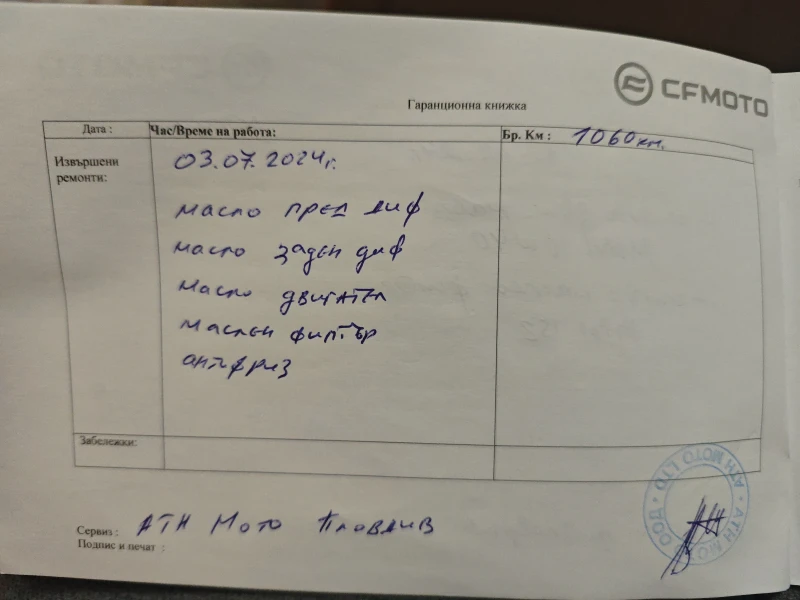 CFMOTO
Гаранционна книжка
Дата : Час/Време на работа: Бр. Км : 1060 км.
Извършени ремонти: 03.07.2024г.
масло пред диф
масло заден диф
масло двигател
маслен филтър
антифриз
Забележки:
Сервиз : АТН Мото Пловдив
Подпис и печат :
АТН МОТО LTD • АТН МО ООД